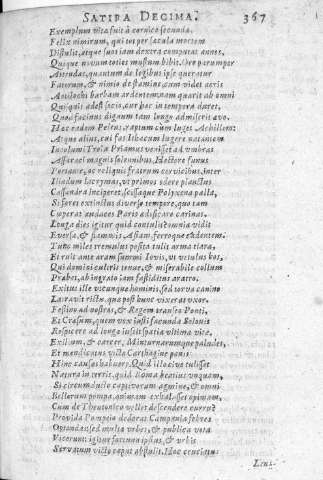 SATIRA DECIMA. 367
Exemplum vitæ fuit à cornice secundæ.
Felix nimirum, qui tot per sæcula mortem
Distulit, atque suos iam dextra computat annos,
Quique novum toties mustum bibit. Oro parumper
Attendas, quantum de legibus ipse queratur
Fatorum, & nimio de stamine, cum videt acris
Antilochi barbam ardentem, nam quærit ab omni
Quisquis adest socio, cur hæc in tempora duret,
Quod facinus dignum tam longo admiserit ævo.
Hæc eadem Peleus, raptum cùm luget Achillem:
Atque alius, cui fas Ithacum lugere natantem
Incolumi Troia Priamus venisset ad vmbras
Assaraci magnis solennibus, Hectore funus
Portante, ac reliquis fratrum cervicibus, inter
Iliadum lacrymas, vt primos edere planctus
Cassandra inciperet, scissaque Polyxena palla,
Si foret extinctus diverso tempore, quo iam
Cœperat audaces Paris ædificare carinas.
Longa dies igitur quid contulit? omnia vidit
Eversa, & flammis Asiam, ferroque cadentem.
Tunc miles tremulus posita tulit arma tiara,
Et ruit ante aram summi Iovis, vt vetulus bos,
Qui domini cultris tenue, & miserabile collum
Præbet, ab ingrato iam fastiditus aratro.
Exitus ille vtcunque hominis, sed torva canino
Latravit rictu, quæ post hunc vixerat vxor.
Festino ad nostros, & Regem transeo Ponti,
Et Crœsum, quem vox iusti facunda Solonis
Respicere ad longæ iussit spatia vltima vitæ.
Exilium, & carcer, Minturnarumque paludes,
Et mendicatus victa Carthagine panis
Hinc causas habuere. Quid illo cive tulisset
Natura in terris, quid Roma beatius vnquam,
Si circumducto captivorum agmine, & omni
Bellorum pompa, animam exhalasset opimam,
Cum de Theutonico vellet descendere curru?
Provida Pompeio dederat Campania febres
Optandas: sed multæ vrbes, & publica vota
Vicerunt: igitur fortuna ipsius, & vrbis
Servatum victo caput abstulit. Hoc cruciatu